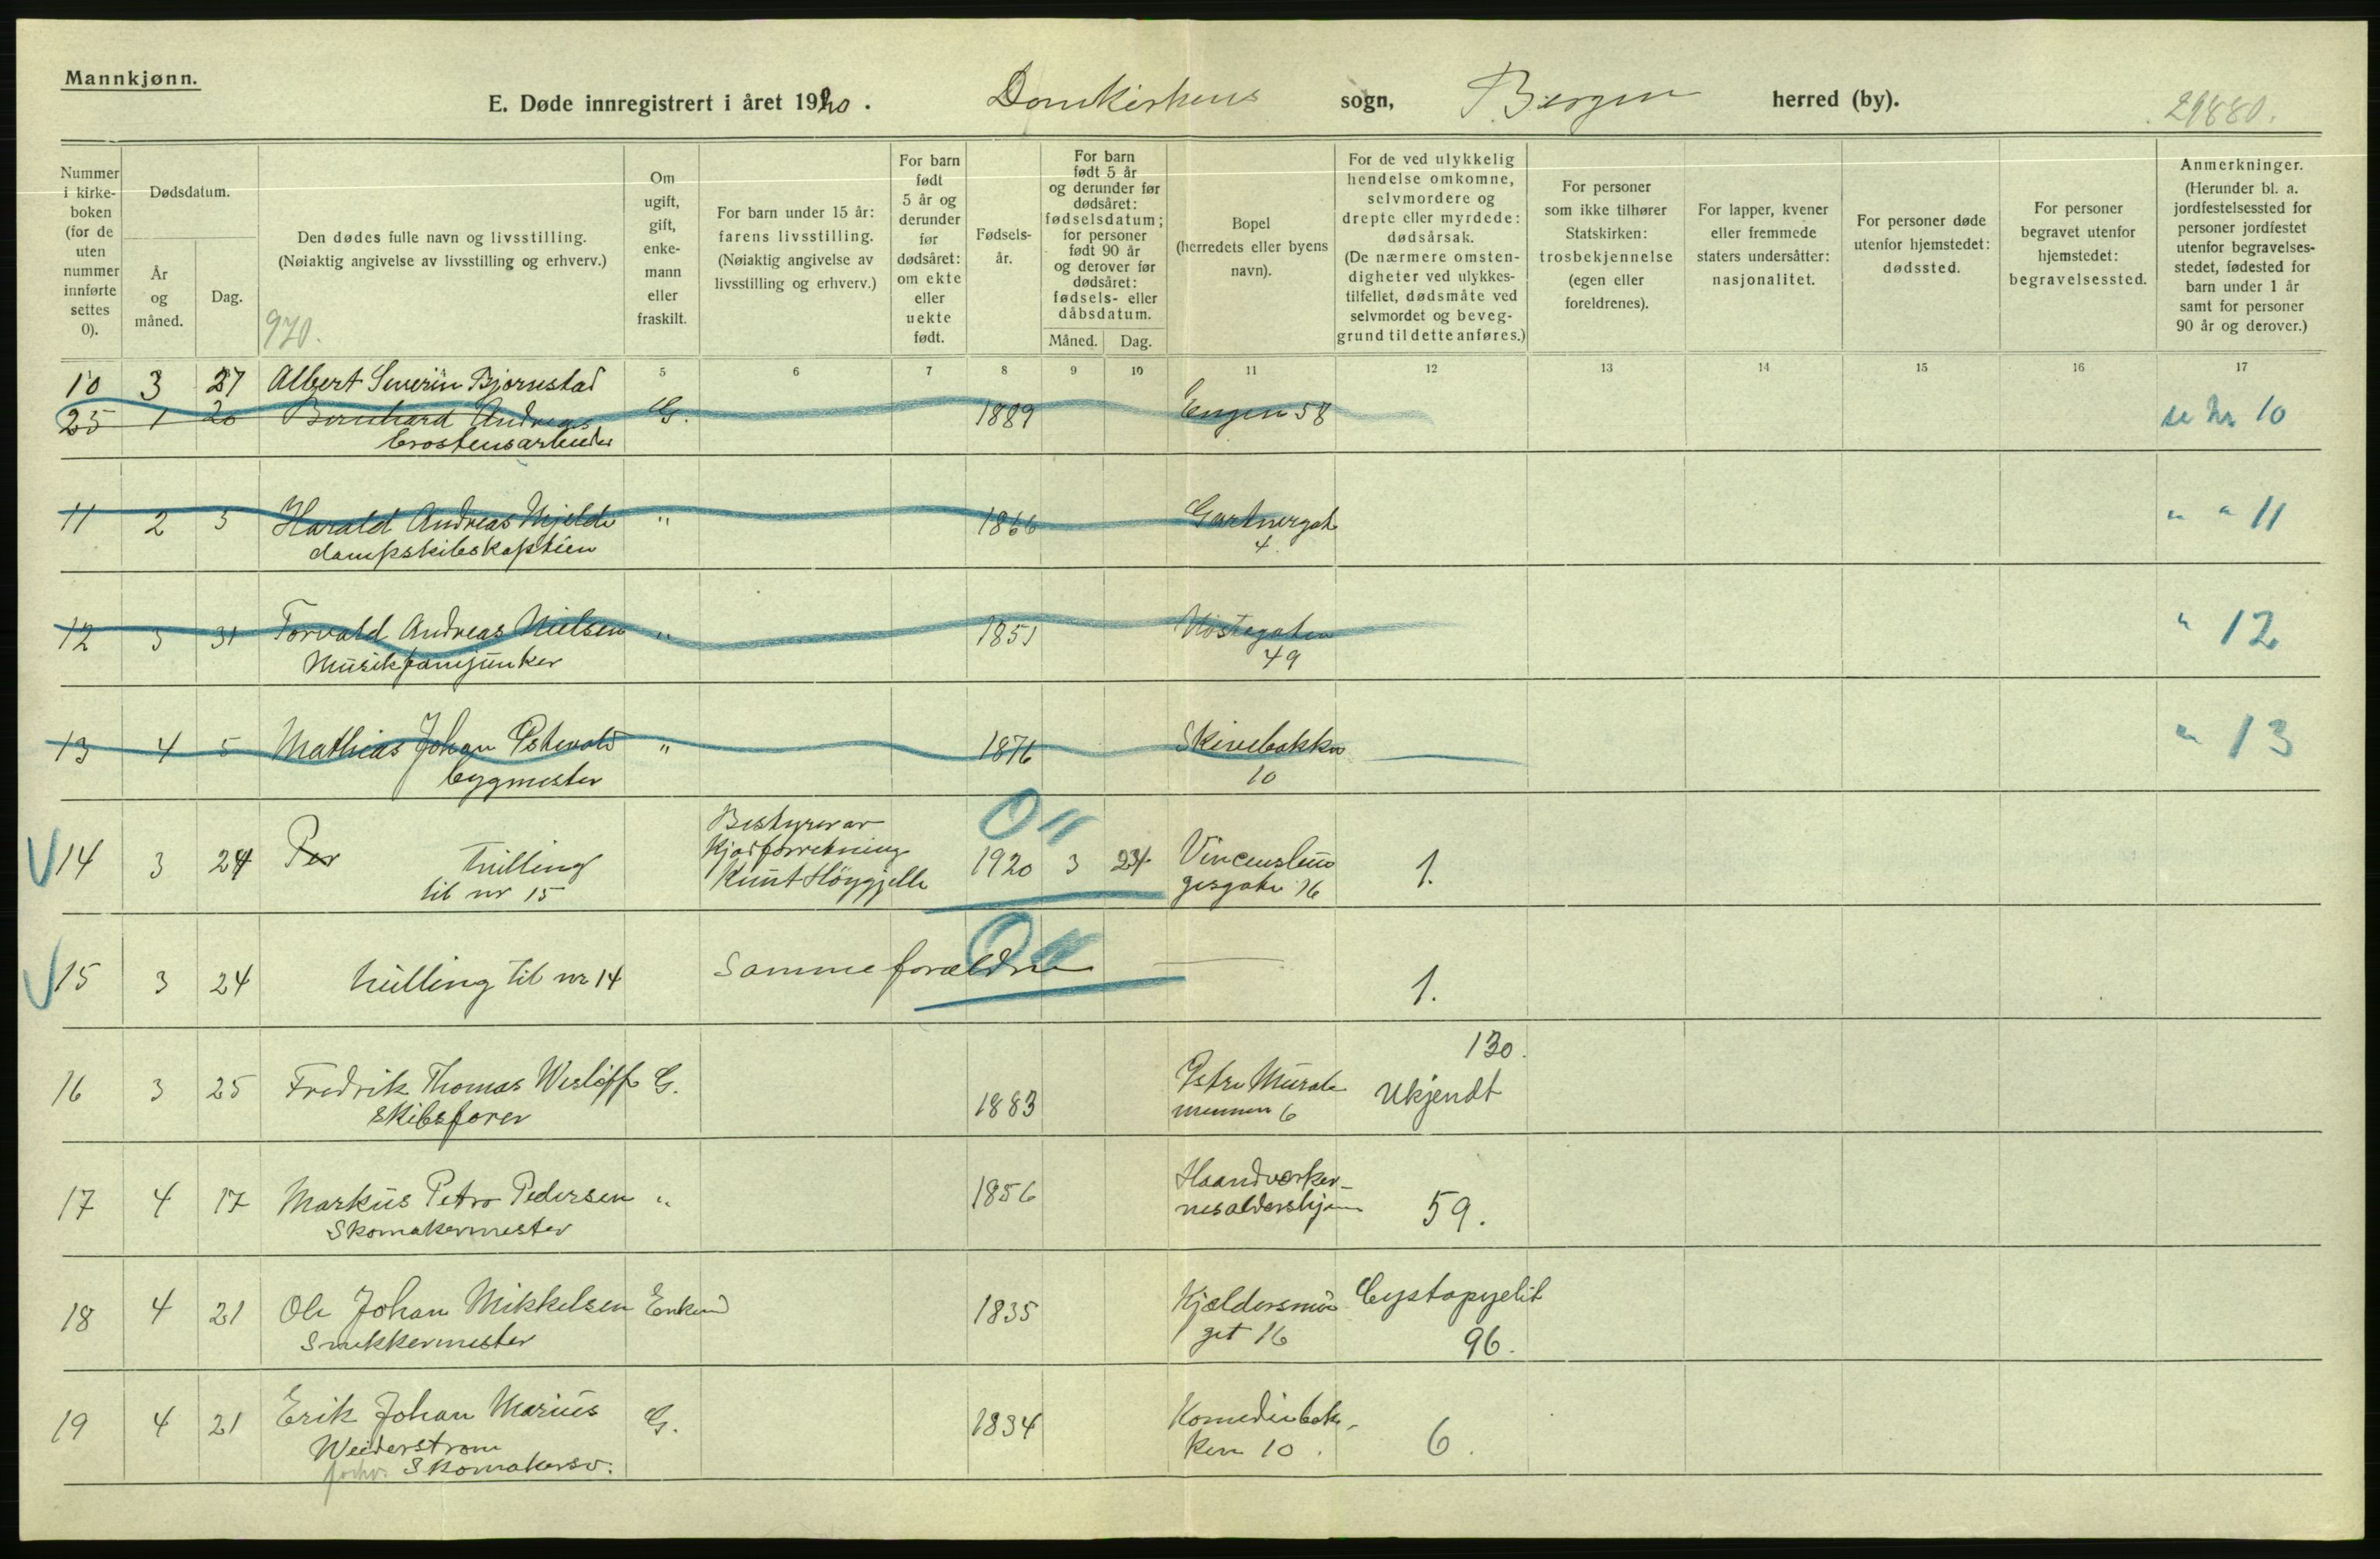 Mannkjønn.
E. Døde innregistrert i året 1920. Domkirkens sogn, Bergen herred (by). 21880.
Nummer i kirke-boken (for de uten nummer innførte settes 0).
Dødsdatum.
År og måned.
Dag.
Den dødes fulle navn og livsstilling.
(Nøiaktig angivelse av livsstilling og erhverv.)
970.
Om ugift, gift, enke-mann eller fraskilt.
For barn under 15 år: farens livsstilling.
(Nøiaktig angivelse av livsstilling og erhverv.)
For barn født 5 år og derunder før dødsåret: om ekte eller uekte født.
Fødsels-år.
For barn født 5 år og derunder før dødsåret: fødselsdatum; for personer født 90 år og derover før dødsåret: fødsels- eller dåbsdatum.
Måned. Dag.
Bopel (herredets eller byens navn).
For de ved ulykkelig hendelse omkomne, selvmordere og drepte eller myrdede: dødsårsak.
(De nærmere omsten-digheter ved ulykkes-tilfellet, dødsmåte ved selvmordet og beveg-grund til dette anføres.)
For personer som ikke tilhører Statskirken: trosbekjennelse (egen eller foreldrenes).
For lapper, kvener eller fremmede staters undersåtter: nasjonalitet.
For personer døde utenfor hjemstedet: dødssted.
For personer begravet utenfor hjemstedet: begravelsessted.
Anmerkninger.
(Herunder bl. a. jordfestelsessted for personer jordfestet utenfor begravelses-stedet, fødested for barn under 1 år samt for personer 90 år og derover.)
5 6 7 8 9 10 11 12 13 14 15 16 17
10 3 27 Albert Severin Bjørnestad
25 1 20 Bernhard Andreas G. 1889 Engen 58 se nr 10
11 2 3 Harald Andreas Mjelde " 1866 Gartnergat 4 " " 11
dampskibskaptein
12 3 31 Torvald Andreas Nielsen " 1851 Nöstegaten 49 " 12
Musikfanejunker
13 4 5 Mathias Johan " 1876 Skivebakken 10 " 13
bygmester
14 3 24 Per Tvilling til nr 15 Bestyrer av Kjødforretning Knut Höygjelle 1920 3 24 16 1.
15 3 24 tvilling til nr 14 Samme forældre 1.
130.
16 3 25 Fredrik Thomas Wisløff G. 1883 Østre Murale mennen 6 Ukjendt
Skibsfører
17 4 17 Markus Petro Pedersen " 1856 Haandværker-nes aldershjem 59.
Skomakermester
18 4 21 Ole Johan Mikkelsen Enkem 1835 Kjeldersmu get 16 Cystopyelit
Snekkermester 96.
19 4 21 Erik Johan Marius G. 1834 Komediebak-ken 10. 6.
Weiderstrøm
forhv. Skomakersv.